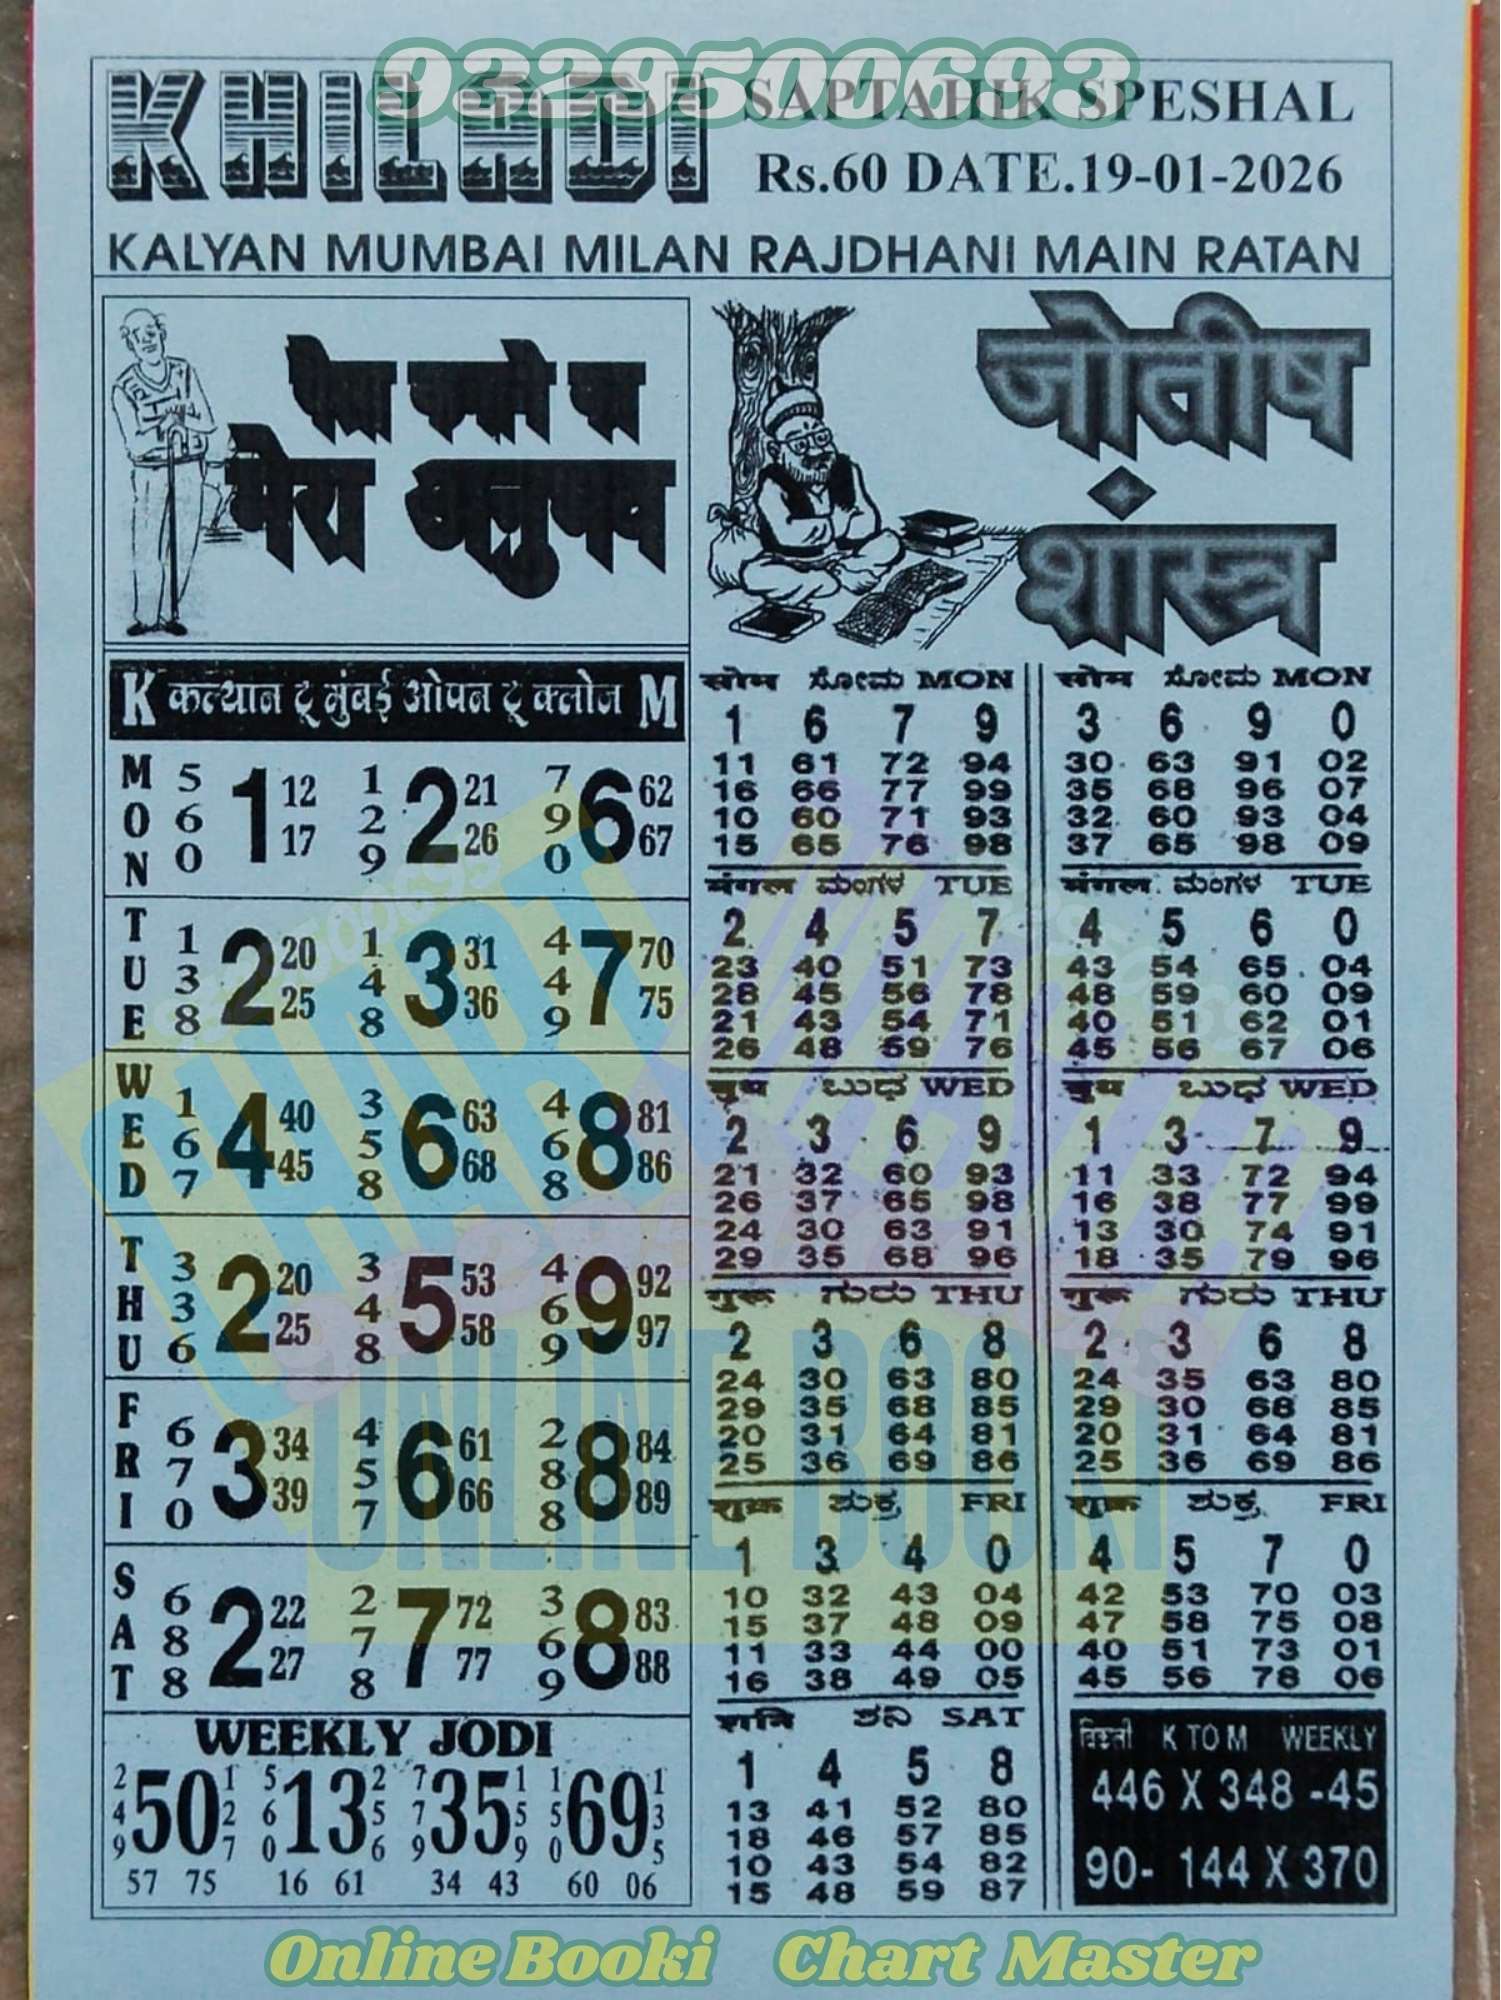 9329500693
KHILADI SAPTAHIK SPESHAL
Rs.60 DATE.19-01-2026
KALYAN MUMBAI MILAN RAJDHANI MAIN RATAN
मेरा अनुभव
जोतीष
शांस्त्र
K कल्यान टू मुंबई ओपन टू क्लोज M
MON 560 1 12 17 129 2 21 26 790 6 62 67
TUE 138 2 20 25 148 3 31 36 449 7 70 75
WED 167 4 40 45 358 6 63 68 468 8 81 86
THU 336 2 20 25 348 5 53 58 469 9 92 97
FRI 670 3 34 39 457 6 61 66 288 8 84 89
SAT 688 2 22 27 278 7 72 77 369 8 83 88
WEEKLY JODI
249 50 127 560 13 256 779 35 159 150 69 135
57 75 16 61 34 43 60 06
सोम ಸೋಮ MON
1 6 7 9
11 61 72 94
16 66 77 99
10 60 71 93
15 65 76 98
मंगल ಮಂಗಳ TUE
2 4 5 7
23 40 51 73
28 45 56 78
21 43 54 71
26 48 59 76
बुध ಬುಧ WED
2 3 6 9
21 32 60 93
26 37 65 98
24 30 63 91
29 35 68 96
गुरू ಗುರು THU
2 3 6 8
24 30 63 80
29 35 68 85
20 31 64 81
25 36 69 86
शुक्र ಶುಕ್ರ FRI
1 3 4 0
10 32 43 04
15 37 48 09
11 33 44 00
16 38 49 05
शनि ಶನಿ SAT
1 4 5 8
13 41 52 80
18 46 57 85
10 43 54 82
15 48 59 87
सोम ಸೋಮ MON
3 6 9 0
30 63 91 02
35 68 96 07
32 60 93 04
37 65 98 09
मंगल ಮಂಗಳ TUE
4 5 6 0
43 54 65 04
48 59 60 09
40 51 62 01
45 56 67 06
बुध ಬುಧ WED
1 3 7 9
11 33 72 94
16 38 77 99
13 30 74 91
18 35 79 96
गुरू ಗುರು THU
2 3 6 8
24 35 63 80
29 30 68 85
20 31 64 81
25 36 69 86
शुक्र ಶುಕ್ರ FRI
4 5 7 0
42 53 70 03
47 58 75 08
40 51 73 01
45 56 78 06
K TO M WEEKLY
446 X 348 -45
90- 144 X 370
ONLINE BOOKI
Online Booki Chart Master